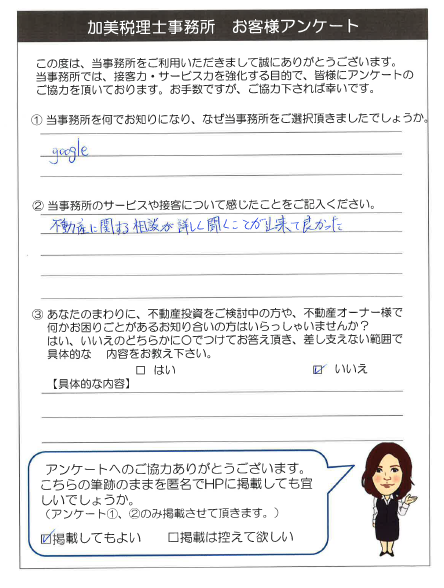 加美税理士事務所　お客様アンケート
この度は、当事務所をご利用いただきまして誠にありがとうございます。
当事務所では、接客力・サービス力を強化する目的で、皆様にアンケートの
ご協力を頂いております。お手数ですが、ご協力下されば幸いです。
① 当事務所を何でお知りになり、なぜ当事務所をご選択頂きましたでしょうか。
google
② 当事務所のサービスや接客について感じたことをご記入ください。
不動産に関する相談が詳しく聞くことが出来て良かった
③ あなたのまわりに、不動産投資をご検討中の方や、不動産オーナー様で
何かお困りごとがあるお知り合いの方はいらっしゃいませんか？
はい、いいえのどちらかに〇でつけてお答え頂き、差し支えない範囲で
具体的な　内容をお教え下さい。
□ はい　☑ いいえ
【具体的な内容】
アンケートへのご協力ありがとうございます。
こちらの筆跡のままを匿名でHPに掲載しても宜
しいでしょうか。
（アンケート①、②のみ掲載させて頂きます。）
☑掲載してもよい　□掲載は控えて欲しい